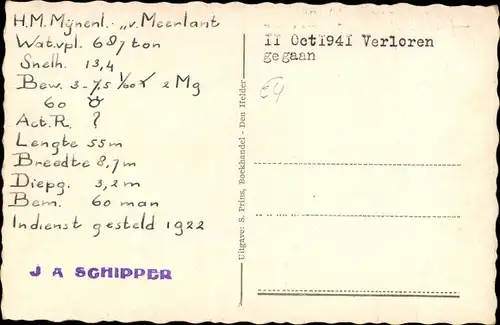 H.M. Mynenl. „v. Meerlant
Wat.vpl. 687 ton
Snelh. 13,4
Bew. 3-7,5 1/60 2 Mg
60
Act.R. ?
Lengte 55m
Breedte 8,7m
Diepg. 3,2m
Bem. 60 man
Indienst gesteld 1922
J A SCHIPPER
Uitgave: S. Prins, Boekhandel - Den Helder
II Oct1941 Verloren
gegaan